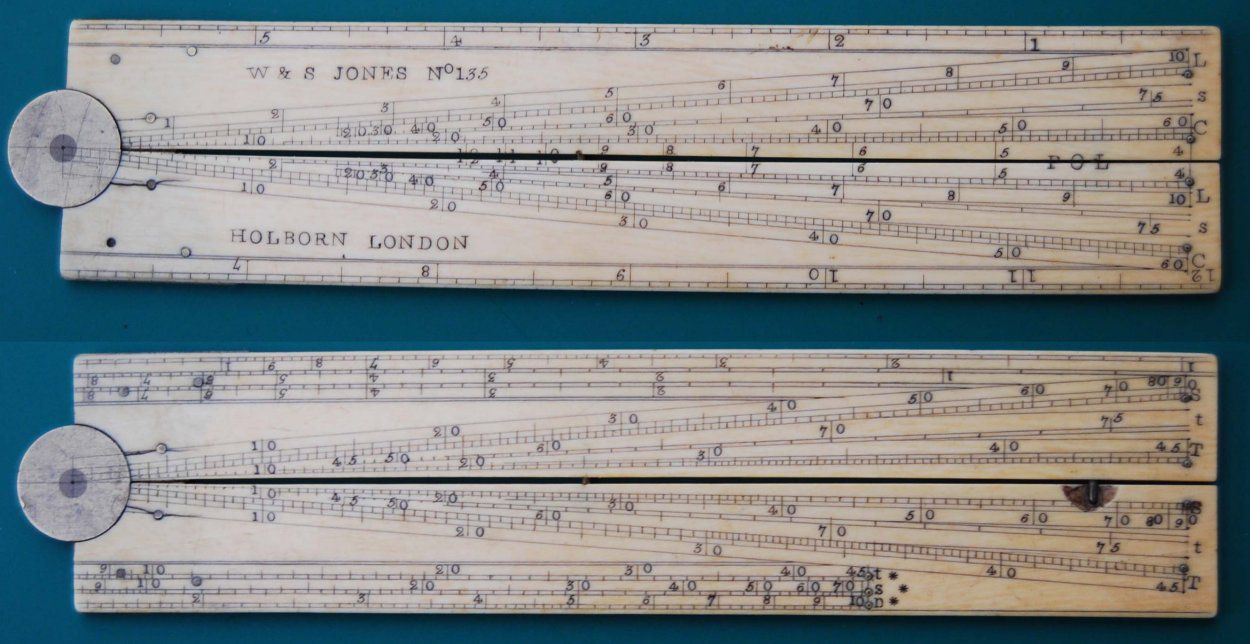 5 4 3 2 1
W & S JONES Nº135
1 2 3 4 5 6 7 8 9 10 L
20 30 40 50 60 70 75 S
10 20 30 40 50 60 C
12 11 10 9 8 7 6 5 4
9 8 7 6 5 POL 4
1 2 3 4 5 6 7 8 9 10 L
20 30 40 50 60 70 75 S
10 20 30 40 50 60 C
HOLBORN LONDON
7 8 9 10 11 12
1 9 8 7 6 5 4 3 2 1
8 7 6 5 4 3 2 1
8 7 6 5 4 3 2
10 20 30 40 50 60 70 80 90 S
45 50 60 70 75 t
10 20 30 40 45 T
10 20 30 40 50 60 70 80 90 S
45 50 60 70 75 t
10 20 30 40 45 T
9 10 20 30 40 45 t *
9 10 20 30 40 50 60 70 S *
2 3 4 5 6 7 8 9 10 n *